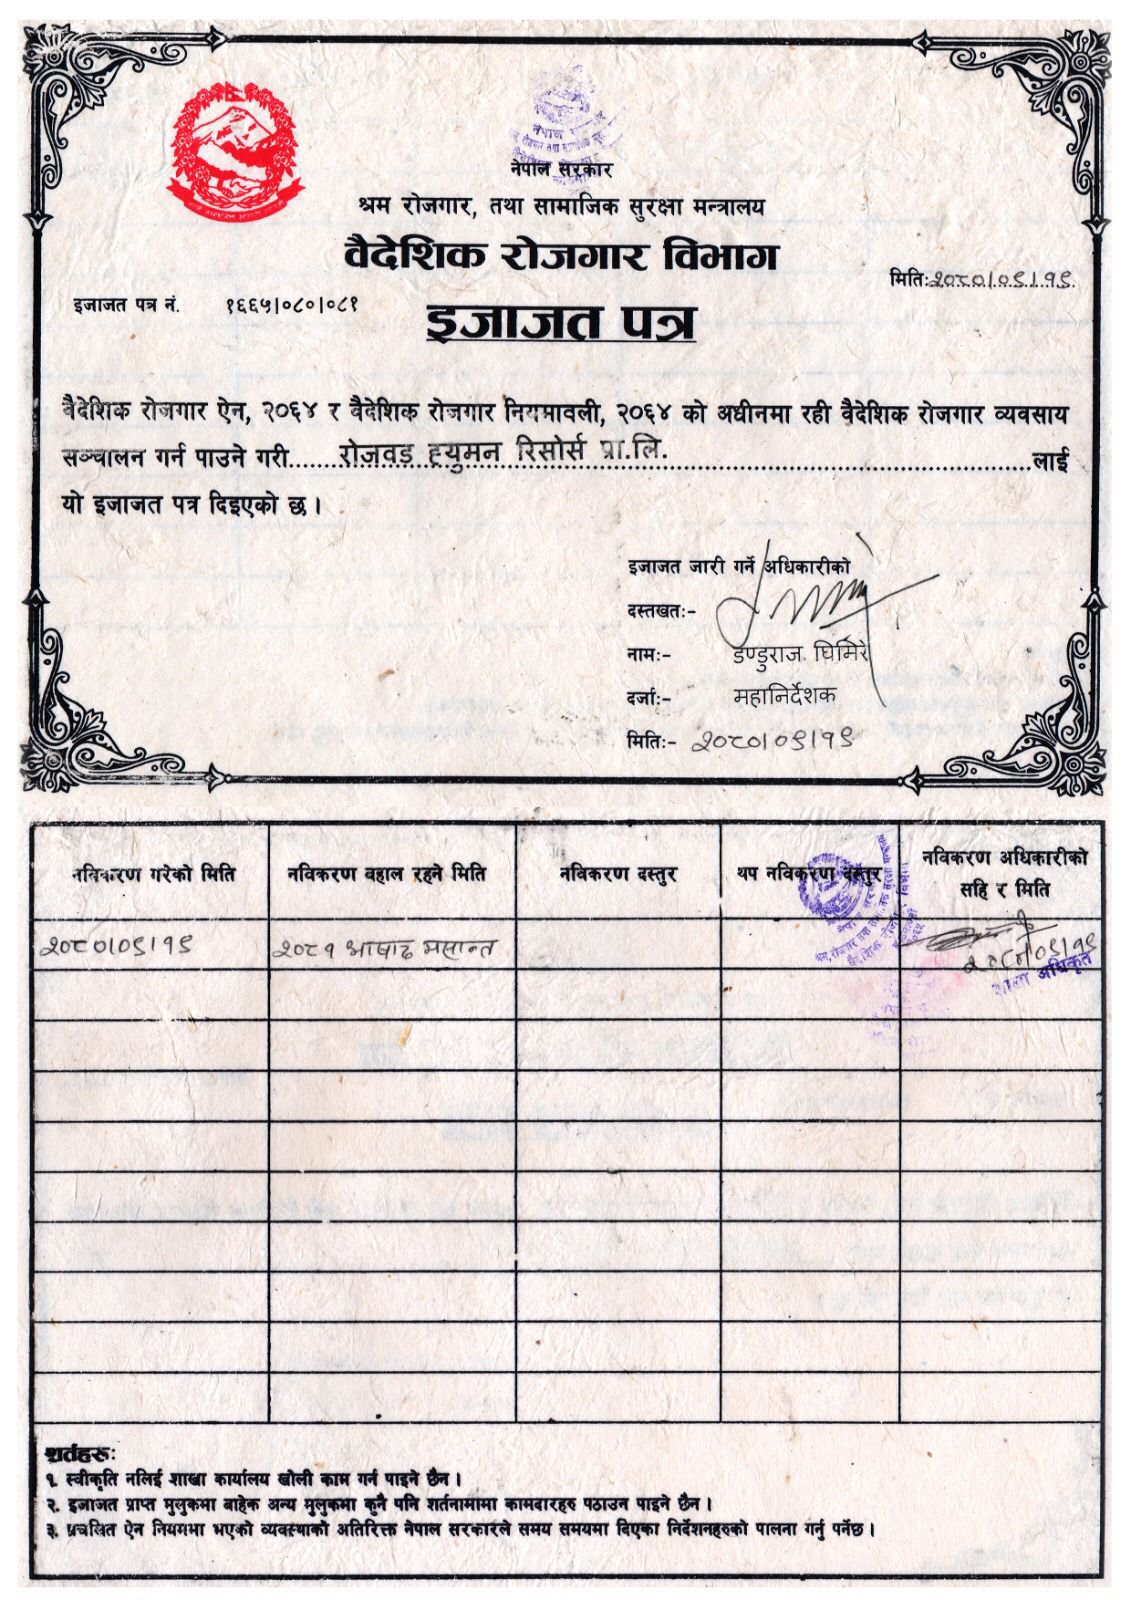 नेपाल सरकार
श्रम रोजगार, तथा सामाजिक सुरक्षा मन्त्रालय
वैदेशिक रोजगार विभाग
मिति:२०८०।०९।१९
इजाजत पत्र नं. १६६५।०८०।०८१
इजाजत पत्र
वैदेशिक रोजगार ऐन, २०६४ र वैदेशिक रोजगार नियमावली, २०६४ को अधीनमा रही वैदेशिक रोजगार व्यवसाय
सञ्चालन गर्न पाउने गरी रोजवड ह्युमन रिसोर्स प्रा.लि. लाई
यो इजाजत पत्र दिइएको छ।
इजाजत जारी गर्ने अधिकारीको
दस्तखतः-
नामः- डण्डुराज घिमिरे
दर्जाः- महानिर्देशक
मितिः- २०८०।०९।१९
नविकरण गरेको मिति नविकरण वहाल रहने मिति नविकरण दस्तुर थप नविकरण दस्तुर नविकरण अधिकारीको सहि र मिति
२०८०।०९।१९ २०८१ आषाढ मसान्त २०८०।०९।१९
शाखा अधिकृत
शर्तहरुः
१. स्वीकृति नलिई शाखा कार्यालय खोली काम गर्न पाइने छैन।
२. इजाजत प्राप्त मुलुकमा बाहेक अन्य मुलुकमा कुनै पनि शर्तनामामा कामदारहरु पठाउन पाइने छैन।
३. प्रचलित ऐन नियममा भएको व्यवस्थाको अतिरिक्त नेपाल सरकारले समय समयमा दिएका निर्देशनहरुको पालना गर्नु पर्नेछ।